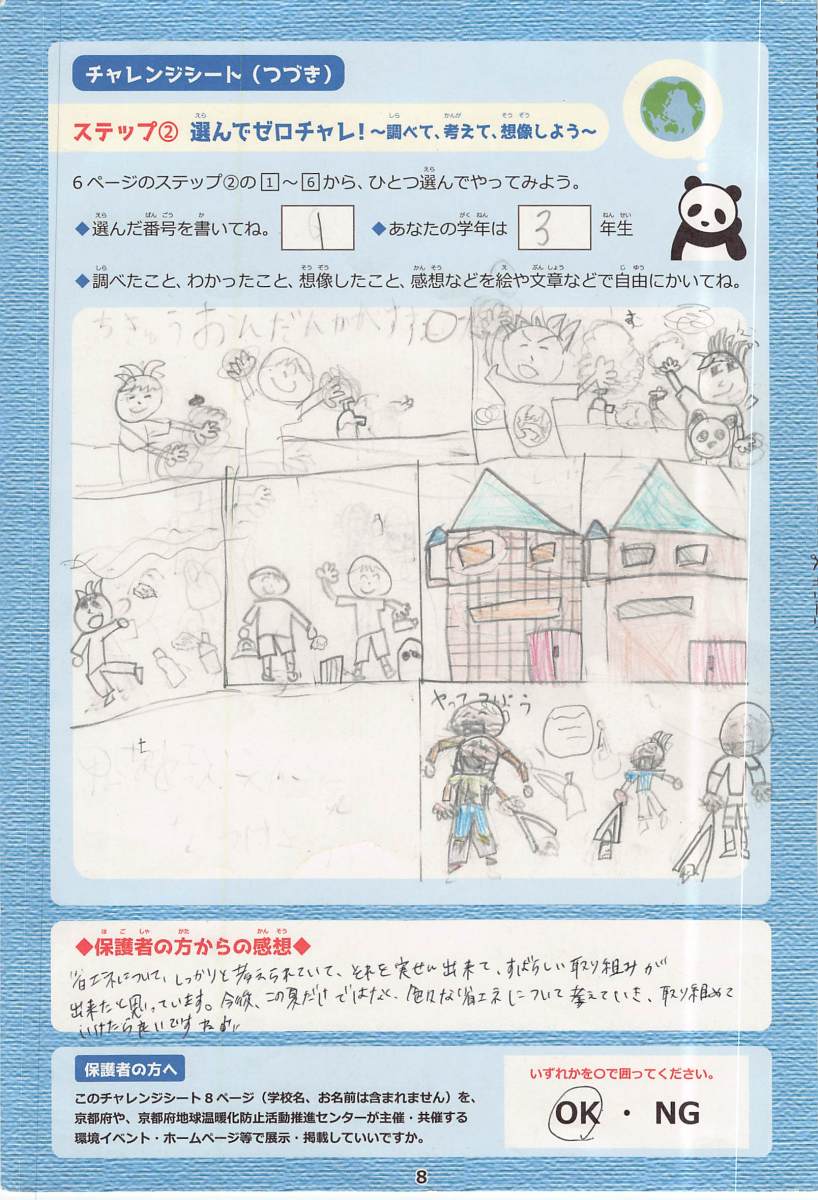 チャレンジシート（つづき）
ステップ② 選んでゼロチャレ！～調べて、考えて、想像しよう～
6ページのステップ②の1～6から、ひとつ選んでやってみよう。
◆選んだ番号を書いてね。 1 ◆あなたの学年は 3 年生
◆調べたこと、わかったこと、想像したこと、感想などを絵や文章などで自由にかいてね。
ちきゅうおんだんか
やってみよう
◆保護者の方からの感想◆
省エネについて、しっかりと考えられていて、それを実せん出来て、すばらしい取り組みが
出来たと思っています。今後、この夏だけではなく、色々な省エネについて考えていき、取り組めて
いけたら良いですね。
保護者の方へ
このチャレンジシート8ページ（学校名、お名前は含まれません）を、
京都府や、京都府地球温暖化防止活動推進センターが主催・共催する
環境イベント・ホームページ等で展示・掲載していいですか。
いずれかを○で囲ってください。
OK ・ NG
8